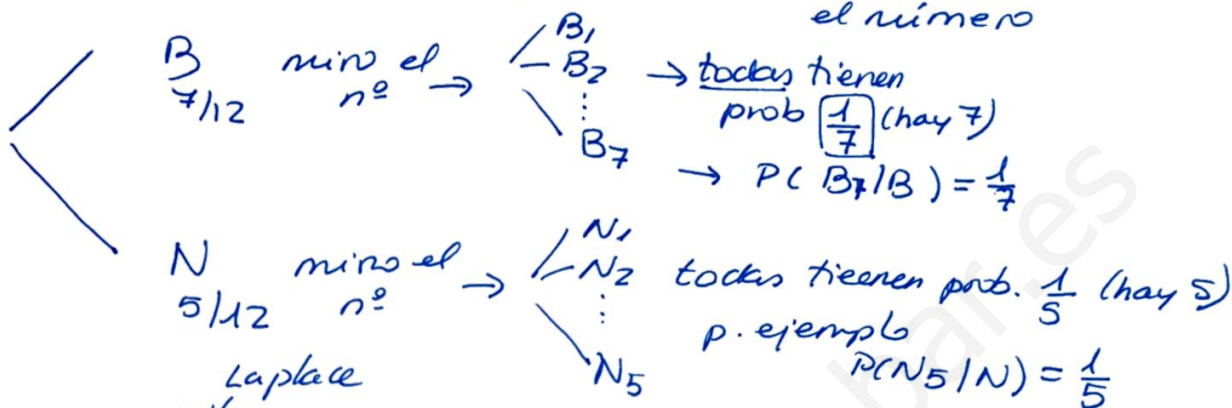 el número
B miro el nº → B1
7/12 B2 → todas tienen
⋮ prob 1/7 (hay 7)
B7 → P( B7/B ) = 1/7
N miro el nº → N1
5/12 N2 todas tieenen prob. 1/5 (hay 5)
⋮ p. ejemplo
N5 P(N5/N) = 1/5
Laplace
bar.es